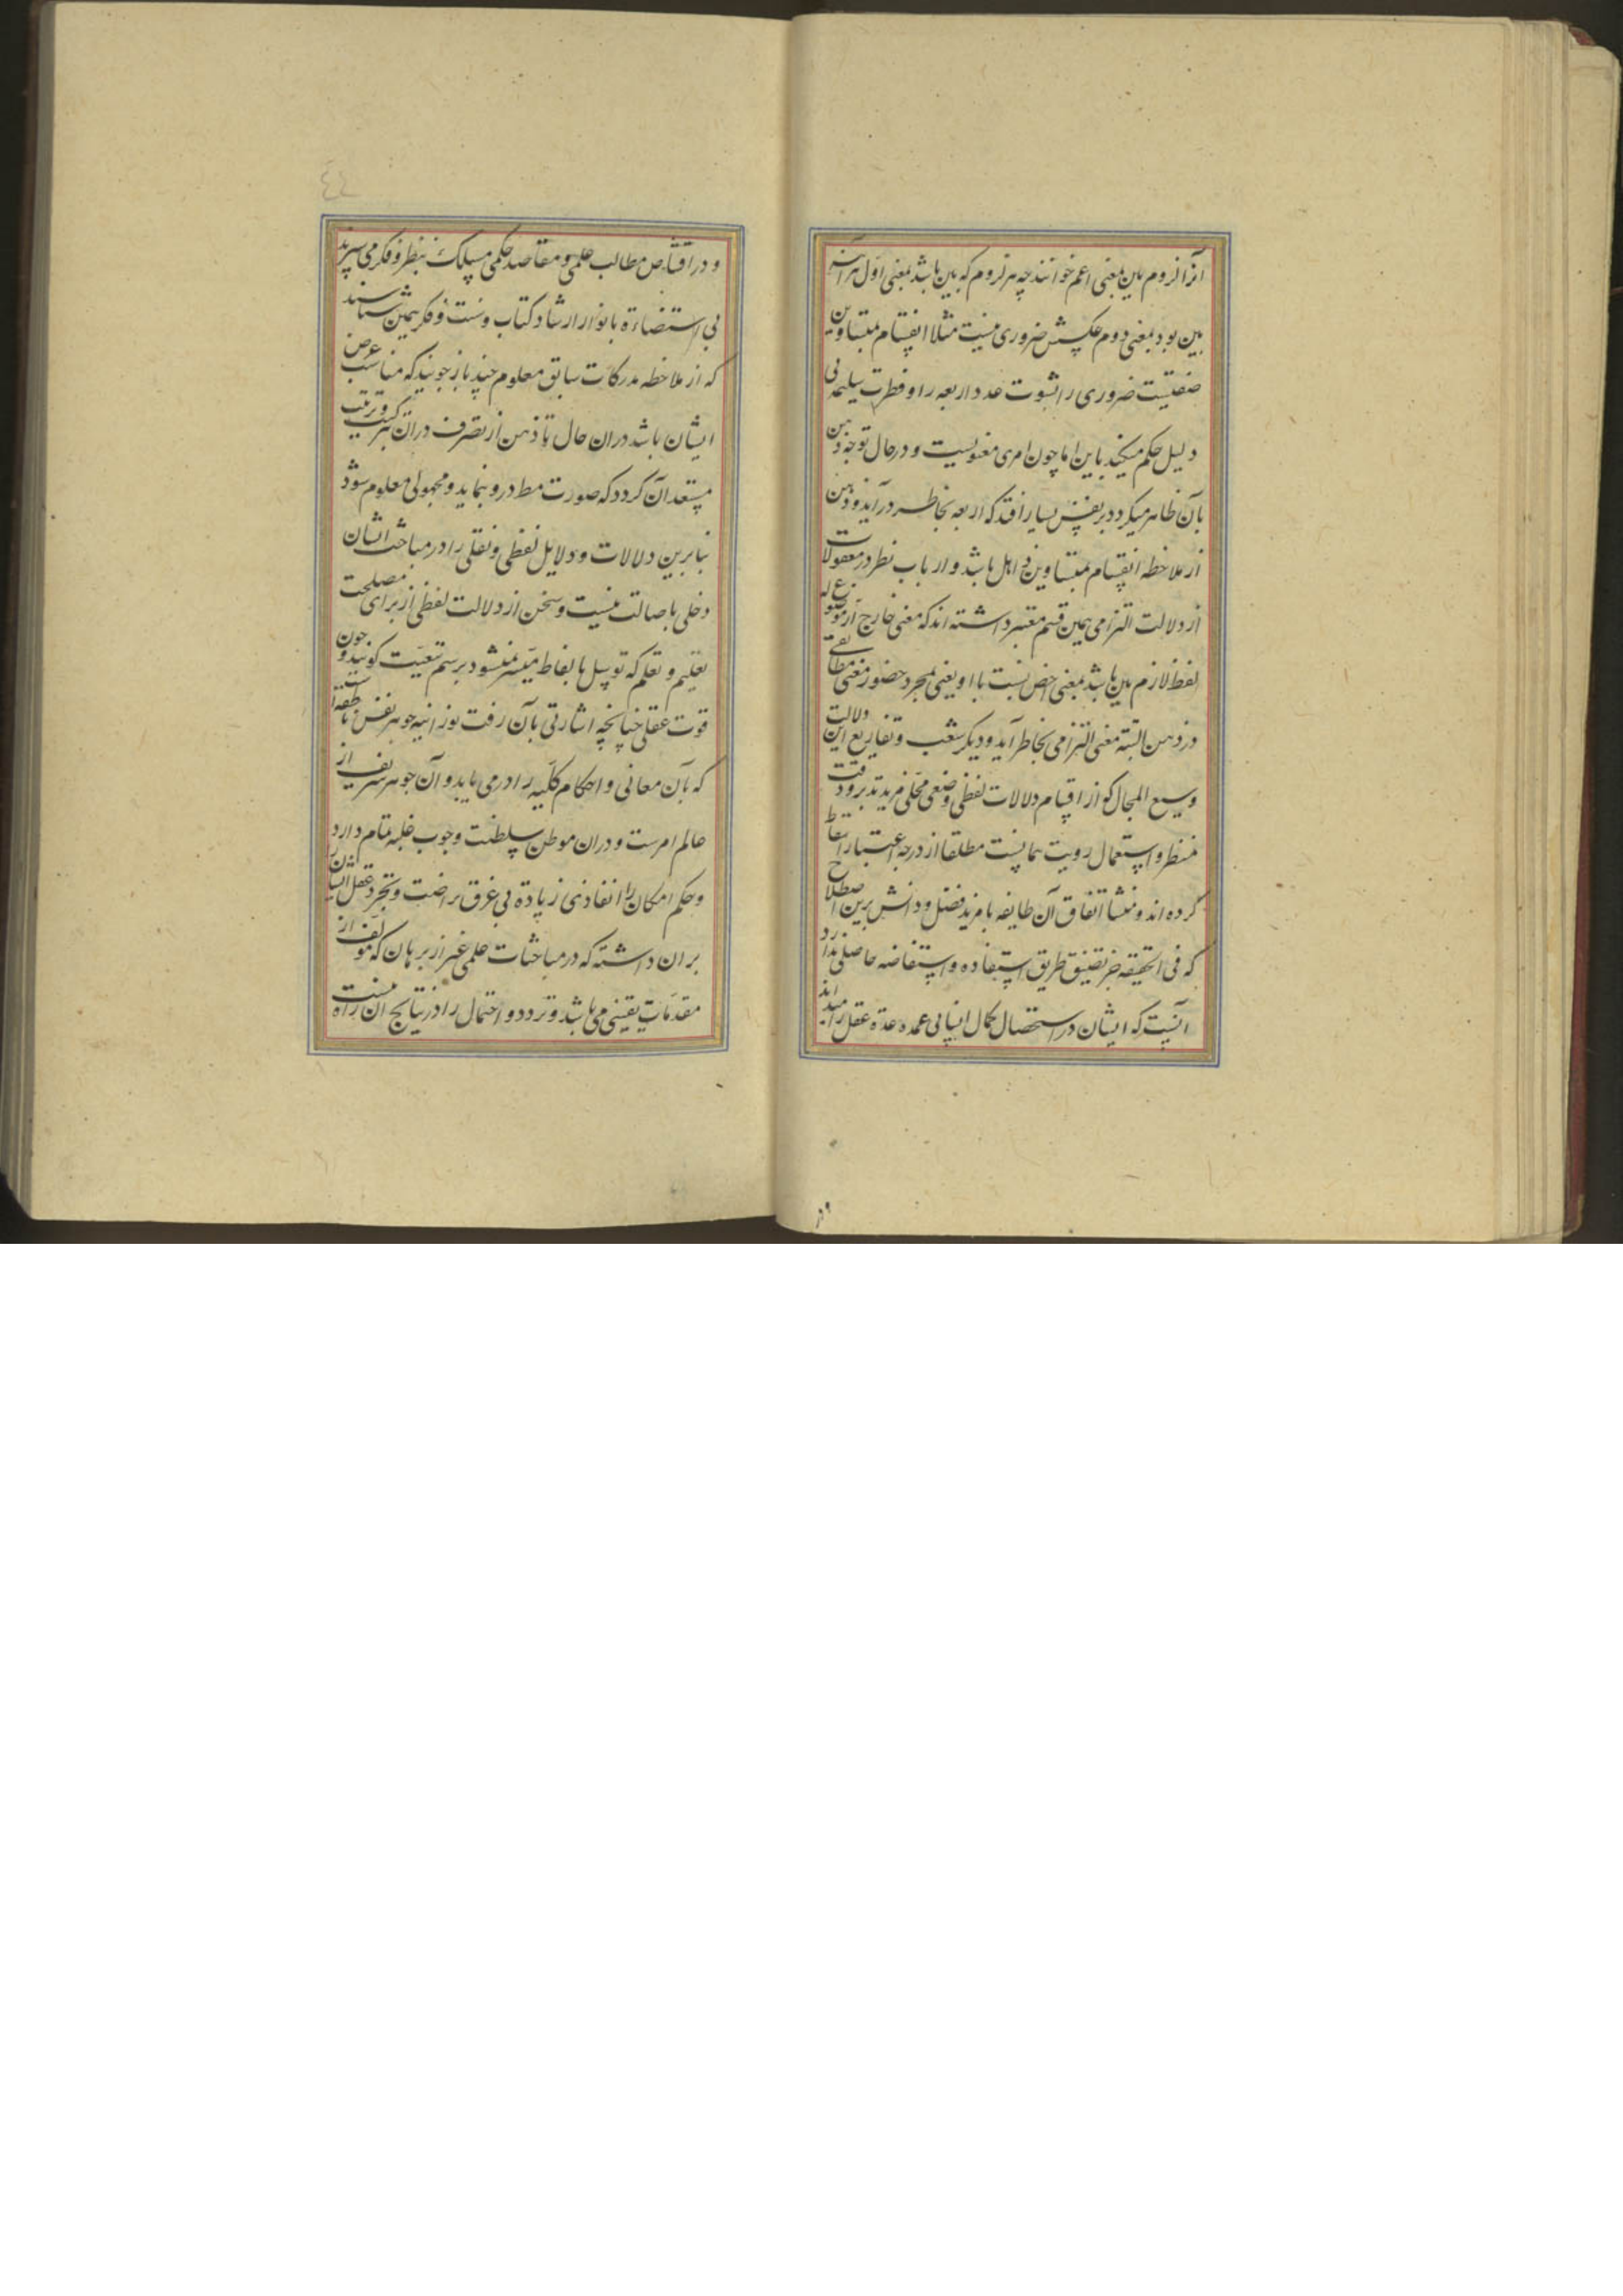 آنرا لزوم بین بمعنی اعم خوانند چه هر لزوم که بین باشد بمعنی اول هر آینه
بین بود بمعنی دوم و عکسش ضروری نیست مثلا انقسام بمتساویین
صفتیست ضروری را ثبوت عدد اربعه را و فطرت سلیم بی
دلیل حکم میکند باین اما چون امری معنویست و در حال توجه ذهن
بآن ظاهر میگردد بر نفس بسیار افتد که اربعه بخاطر درآید و ذهن
از ملاحظه انقسام بمتساویین ذاهل باشد و ارباب نظر در معقولات
از دلالت التزامی همین قسم معتبر داشته اند که معنی خارج از موضوع له
لفظ لازم بین باشد بمعنی اخص نسبت با او یعنی بمجرد حضور معنی مطابقی
در ذهن البته معنی التزامی بخاطر آید و دیگر شعب و تفاریع این دلالت
وسیع المجال کو از اقسام دلالات لفظی وضعی محلی مزید تدبر و دقت
منظر و استعمال رویت همانست مطلقا از درجه اعتبار اسقاط
کرده اند و منشا اتفاق آن طایفه با مزید فضل و دانش برین اصطلاح
که فی الحقیقه جز تضییق طریق استفاده و استفاضه حاصلی ندارد
آنست که ایشان در استحصال کمال انسانی عمده عدة عقل را میدانند
و در
٤٤
و در اقتناص مطالب علمی و مقاصد حکمی مسلک نظر و فکر می سپرند
بی استضاءة بانوار ارشاد کتاب و سنت و فکر همین شناسند
که از ملاحظه مدرکات سابق معلوم چند باز جویند که مناسب غرض
ایشان باشد در ان حال تا ذهن از تصرف در ان بترکیب و ترتیب
مستعد آن گردد که صورت مط درو بنماید و مجهولی معلوم شود
بنا برین دلالات و دلایل لفظی و نقلی را در مباحث ایشان
دخلی باصالت نیست و سخن از دلالت لفظی از برای مصلحت
تعلیم و تعلم که بی توسل بالفاظ میسر نمیشود برسم تبعیت کویند و چون
قوت عقلی چنانچه اشارتی بآن رفت نورانیه جوهر نفس ناطقه است
که بآن معانی و احکام کلیه را در می یابد و آن جوهر شریف از
عالم امرست و در ان موطن سلطنت وجوب غلبه تمام دارد
و حکم امکان را نفاذی زیادة بی عرق ریاضت و تجرد عقل ایشان
بر ان داشته که در مباحثات علمی غیر از برهان که مولف از
مقدمات یقینی می باشد و تردد و احتمال را در نتایج آن راه نیست